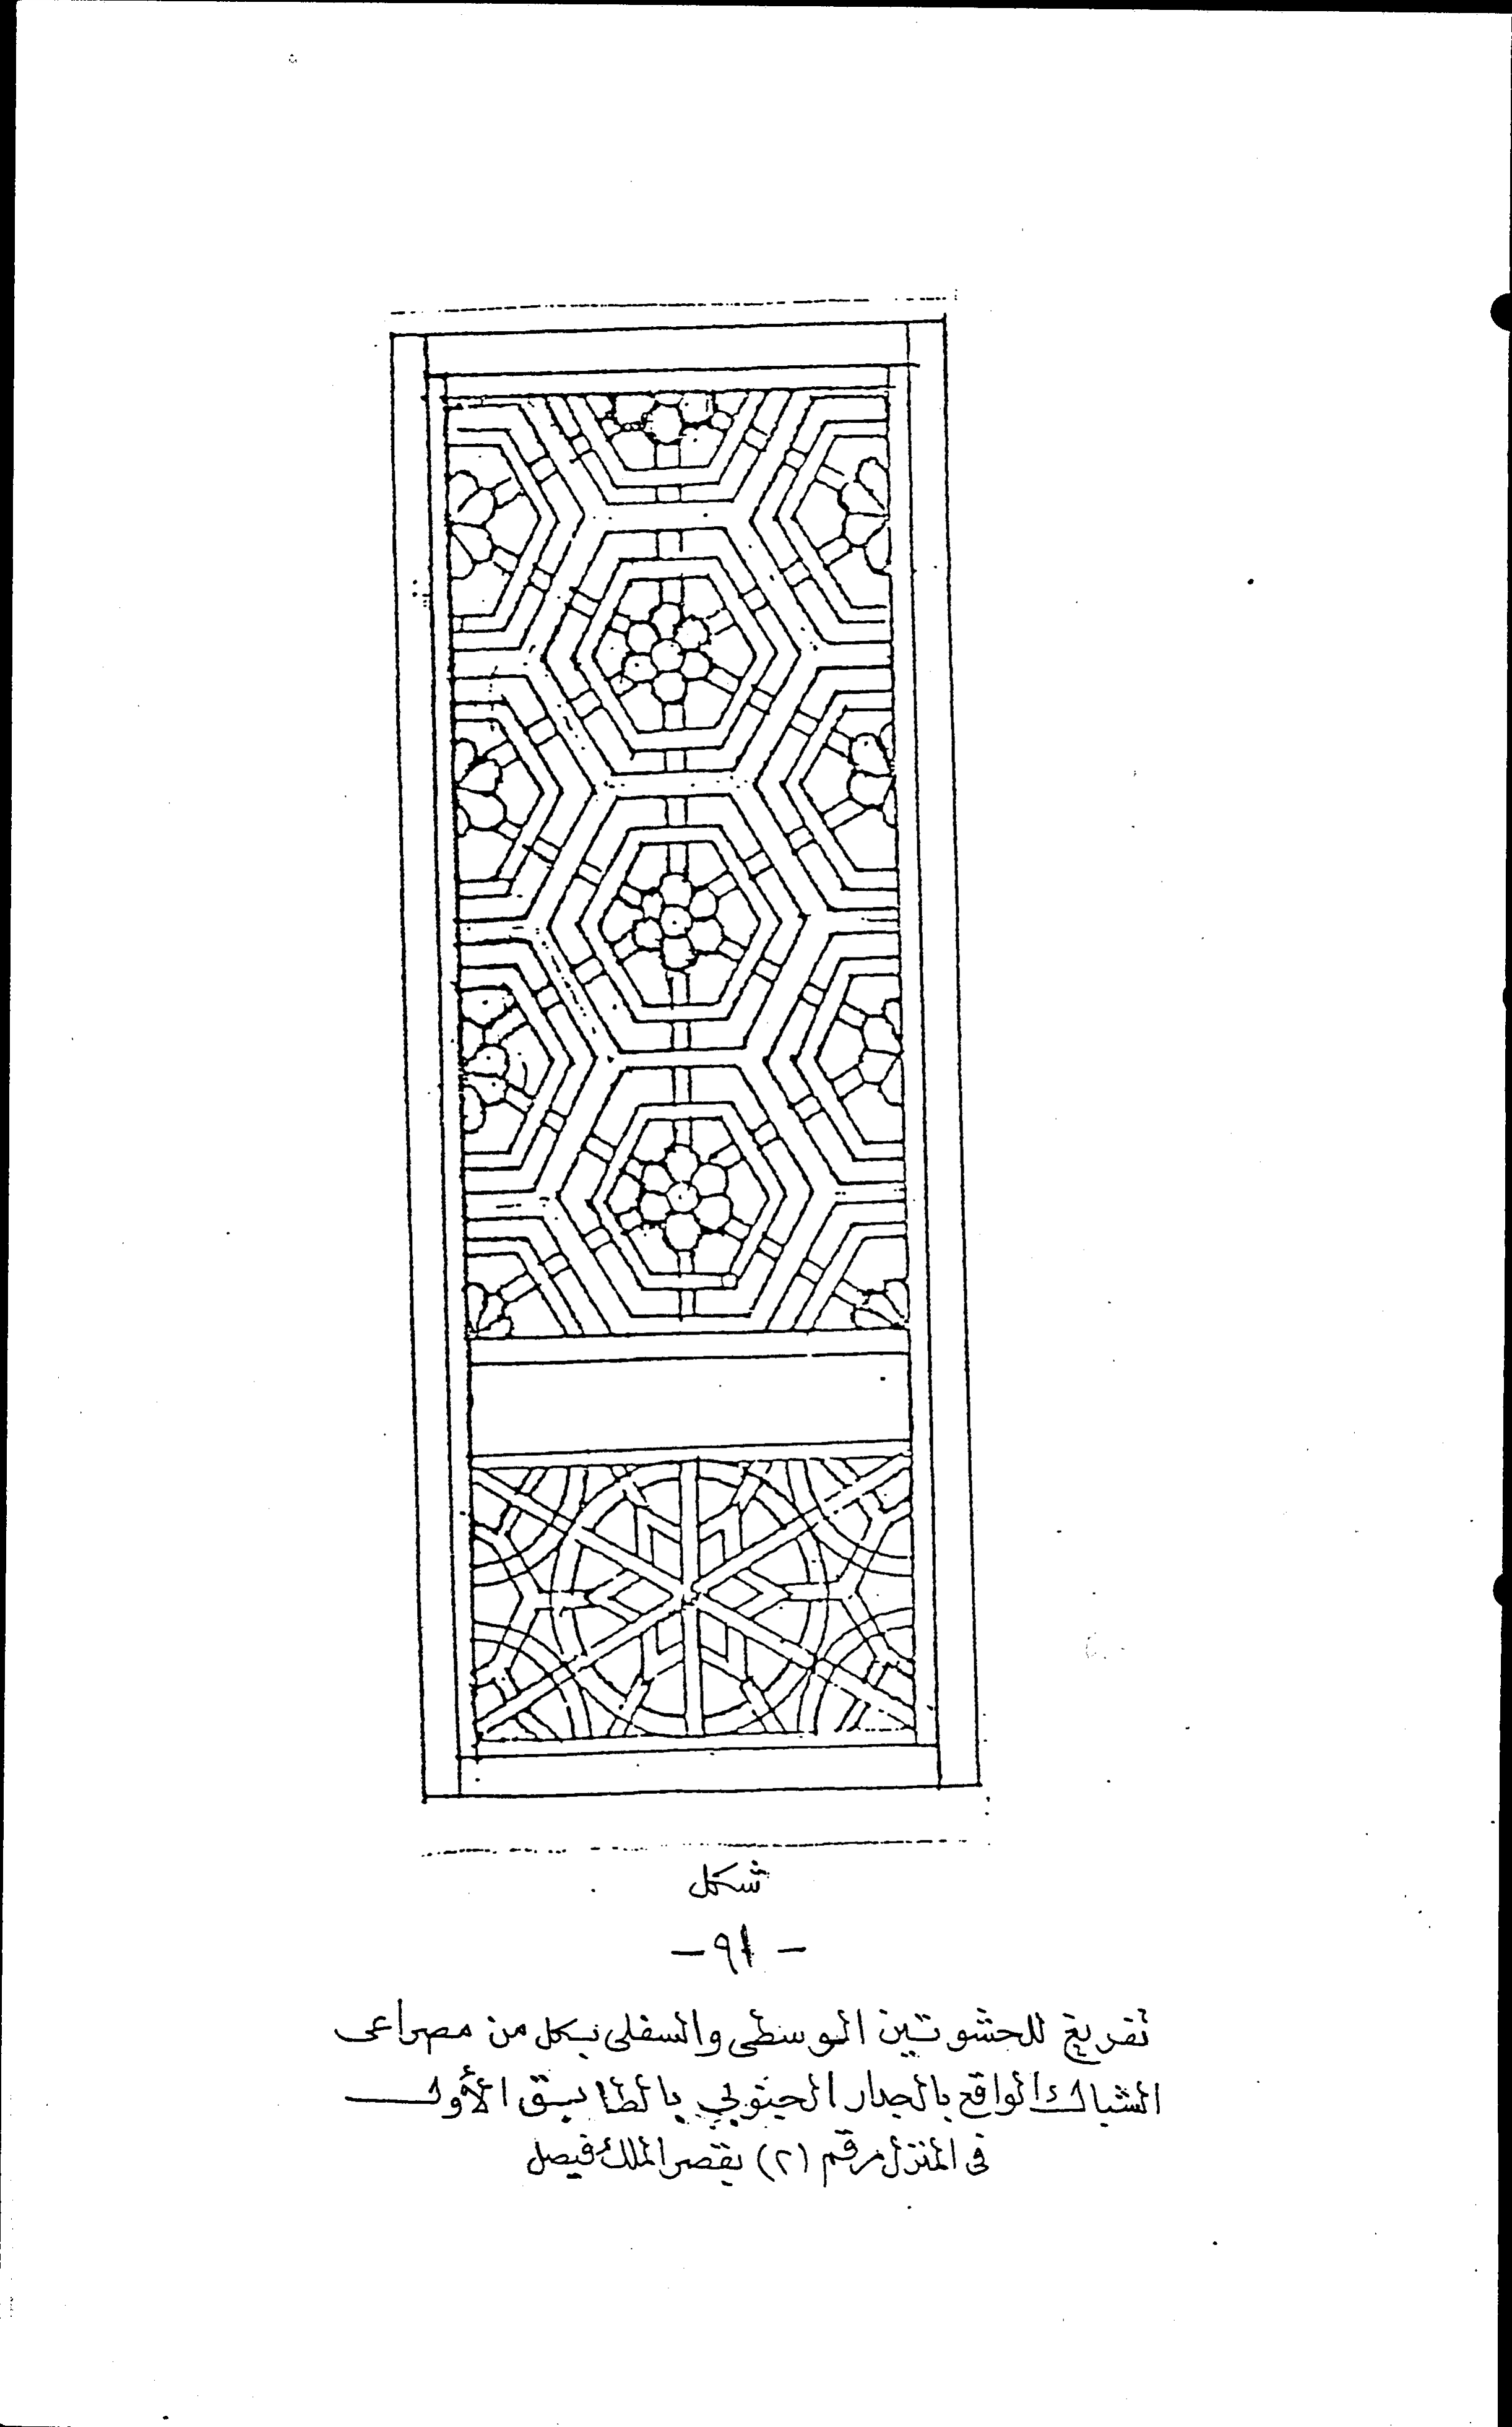 شكل
- ٩١ -
تفريغ للحشوتين الوسطى والسفلى بكل من مصراعى
الشباك الواقع بالجدار الجنوبي بالطابق الأول
فى المنزل رقم (٢) بقصر الملك فيصل